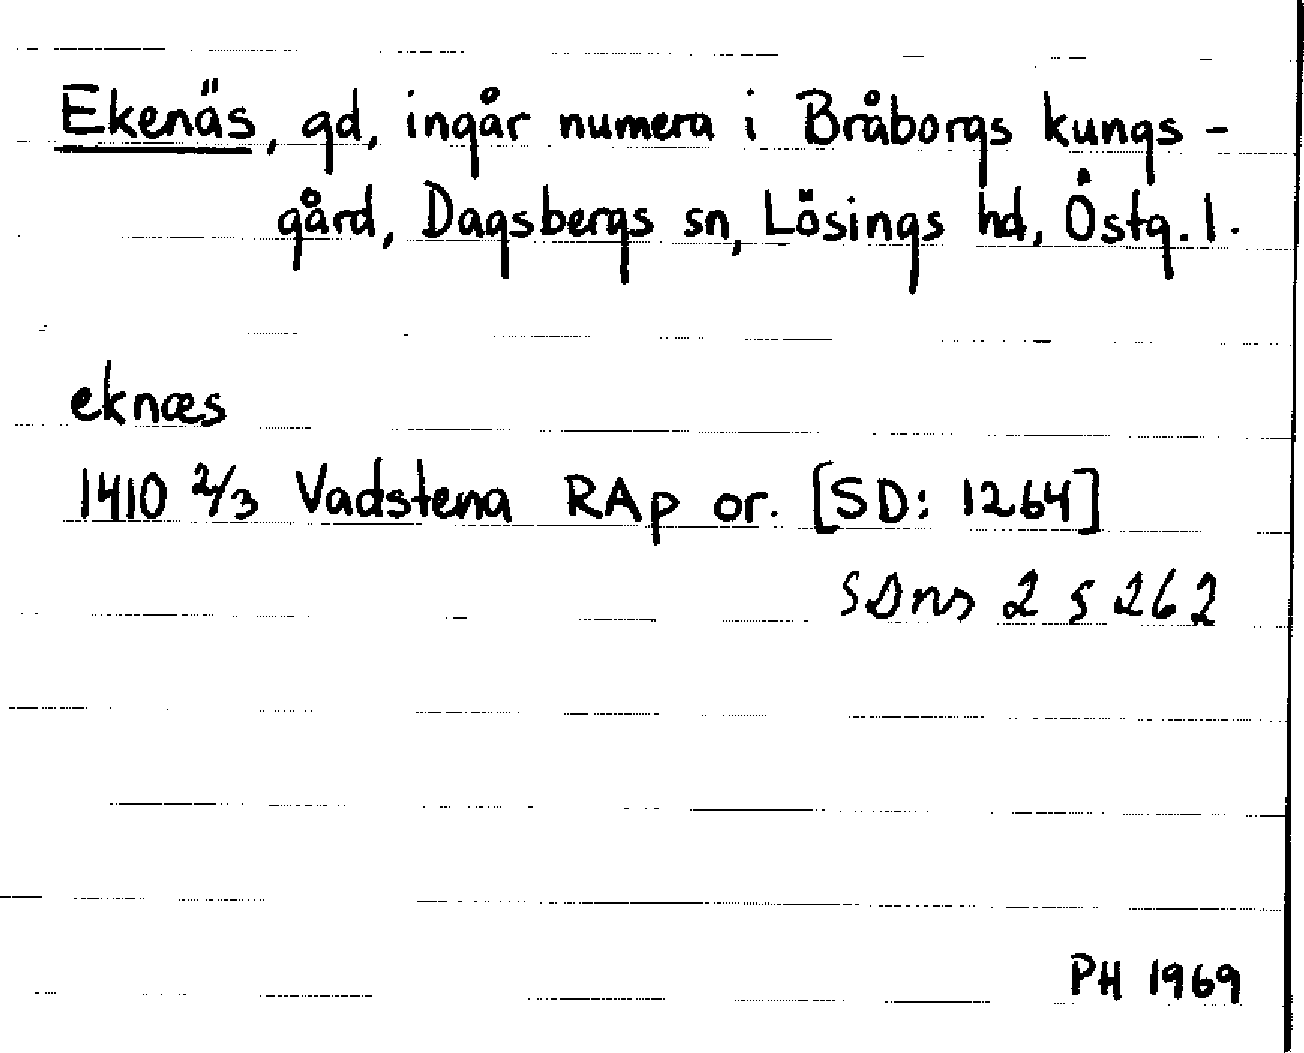 Ekenäs, gd, ingår numera i Bråborgs kungs-
gård, Dagsbergs sn, Lösings hd, Östg. l.
eknæs
1410 2/3 Vadstena RAp or. [SD: 1264]
SDns 2 s 262
PH 1969